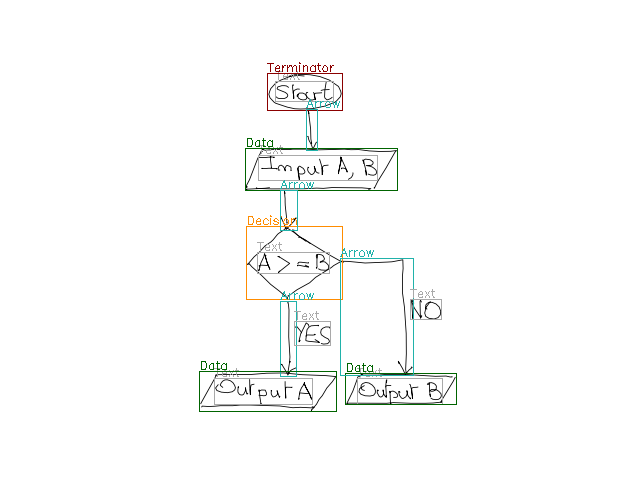 Terminator
Text
Start
Arrow
Data
Text
Input A, B
Arrow
Decision
Text
A >= B
Arrow
Arrow
Text
YES
Text
NO
Data
Text
Output A
Data
Text
Output B